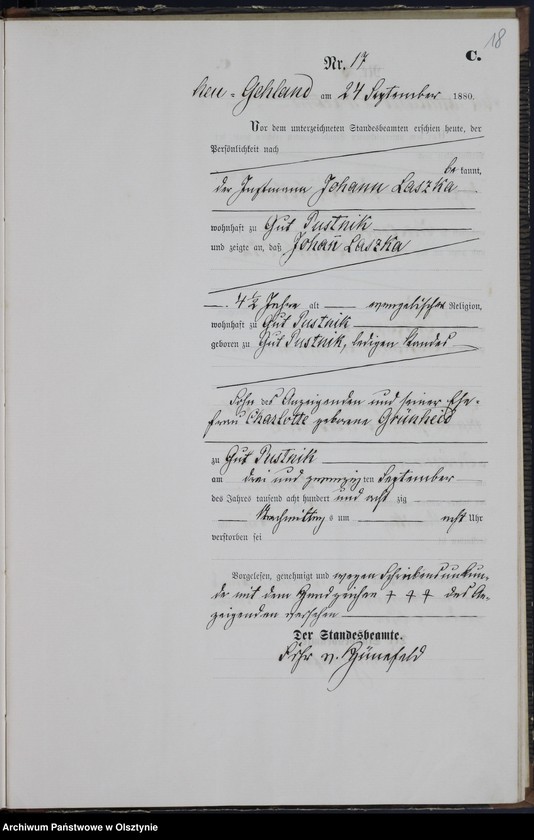 18
C.
Nr. 17
Neu-Gehland am 24 September 1880.
Vor dem unterzeichneten Standesbeamten erschien heute, der
Persönlichkeit nach
be kannt,
der Instmann Johann Laszka
wohnhaft zu Gut Pustnik
und zeigte an, daß Johan̄ Laszka
4 1/2 Jahre alt evangelischer Religion,
wohnhaft zu Gut Pustnik
geboren zu Gut Pustnik, ledigen Standes
Sohn des Anzeigenden und seiner Ehe-
frau Charlotte geborene Grünheid
zu Gut Pustnik
am drei und zwanzigsten September
des Jahres tausend acht hundert und acht zig
Nachmittag s um acht Uhr
verstorben sei
Vorgelesen, genehmigt und wegen Schreibensunkun-
de mit dem Handzeichen + + + des An-
zeigenden versehen
Der Standesbeamte.
v.
Archiwum Państwowe w Olsztynie